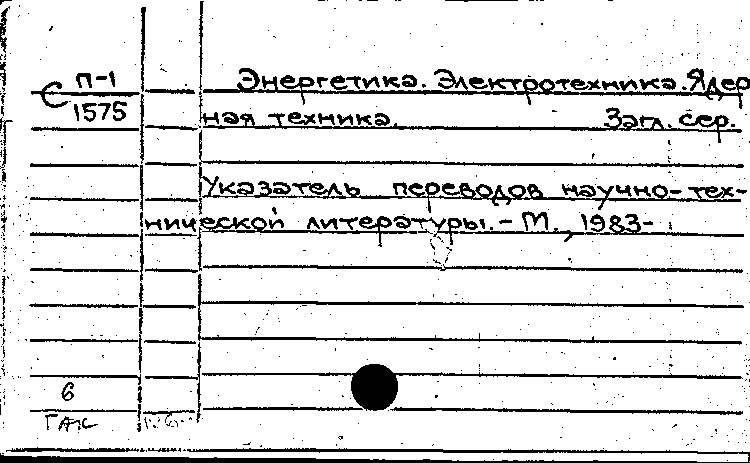 С П-1
1575
Энергетика. Электротехника. Ядер
ная техника. Загл. сер.
Указатель переводов научно-тех-
нической литературы. - М., 1983-
6
ГАК